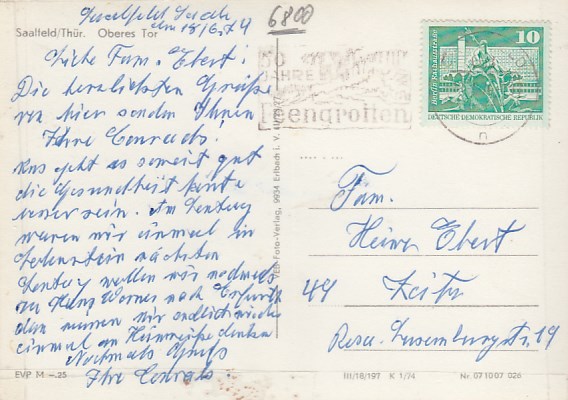 Saalfeld Saale
6800
am 18/6.74
Saalfeld/Thür. Oberes Tor
Liebe Fam. Ebert!
Die herzlichsten Grüße
von hier senden Ihnen
Ihre Conrads!
Uns geht es soweit gut
die Gesundheit könte
besser sein. Am Sontag
waren wir einmal in
Lobenstein nächsten
Sontag wollen wir nochmals
zu Hans Werner nach Erfurt
dan müssen wir endlich wieder
einmal an Heimreise denken
Nochmals Gruß
Ihre Conrads.
EVP M –.25
VEB Foto-Verlag, 9934 Erlbach i. V.
50
JAHRE
Feengrotten
10
Berlin, Rathausstraße
DEUTSCHE DEMOKRATISCHE REPUBLIK
Fam.
Heinz Ebert
49 Zeitz
Rosa-Luxemburgstr. 19
III/18/197 K 1/74 Nr. 07 10 07 026